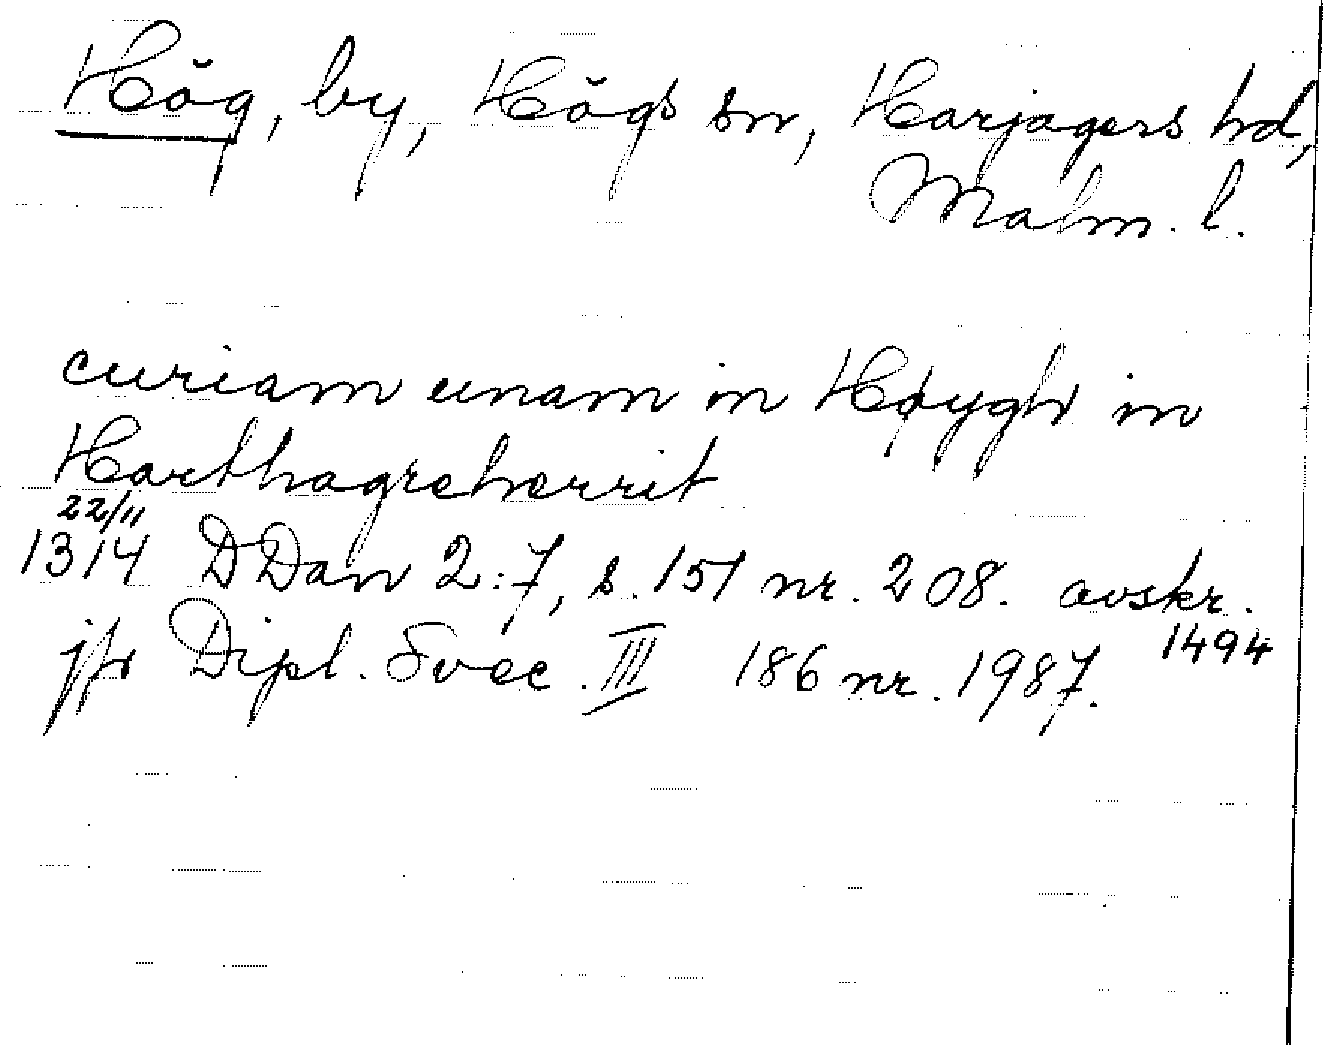 Hög, by, Högs sn, Harjagers hd,
Malm. l.
curiam unam in Høygh in
Harthagreherrit
22/11
1314 DDan 2:7, s. 151 nr. 208. avskr.
1494
jfr Dipl. Svec. III 186 nr. 1987.